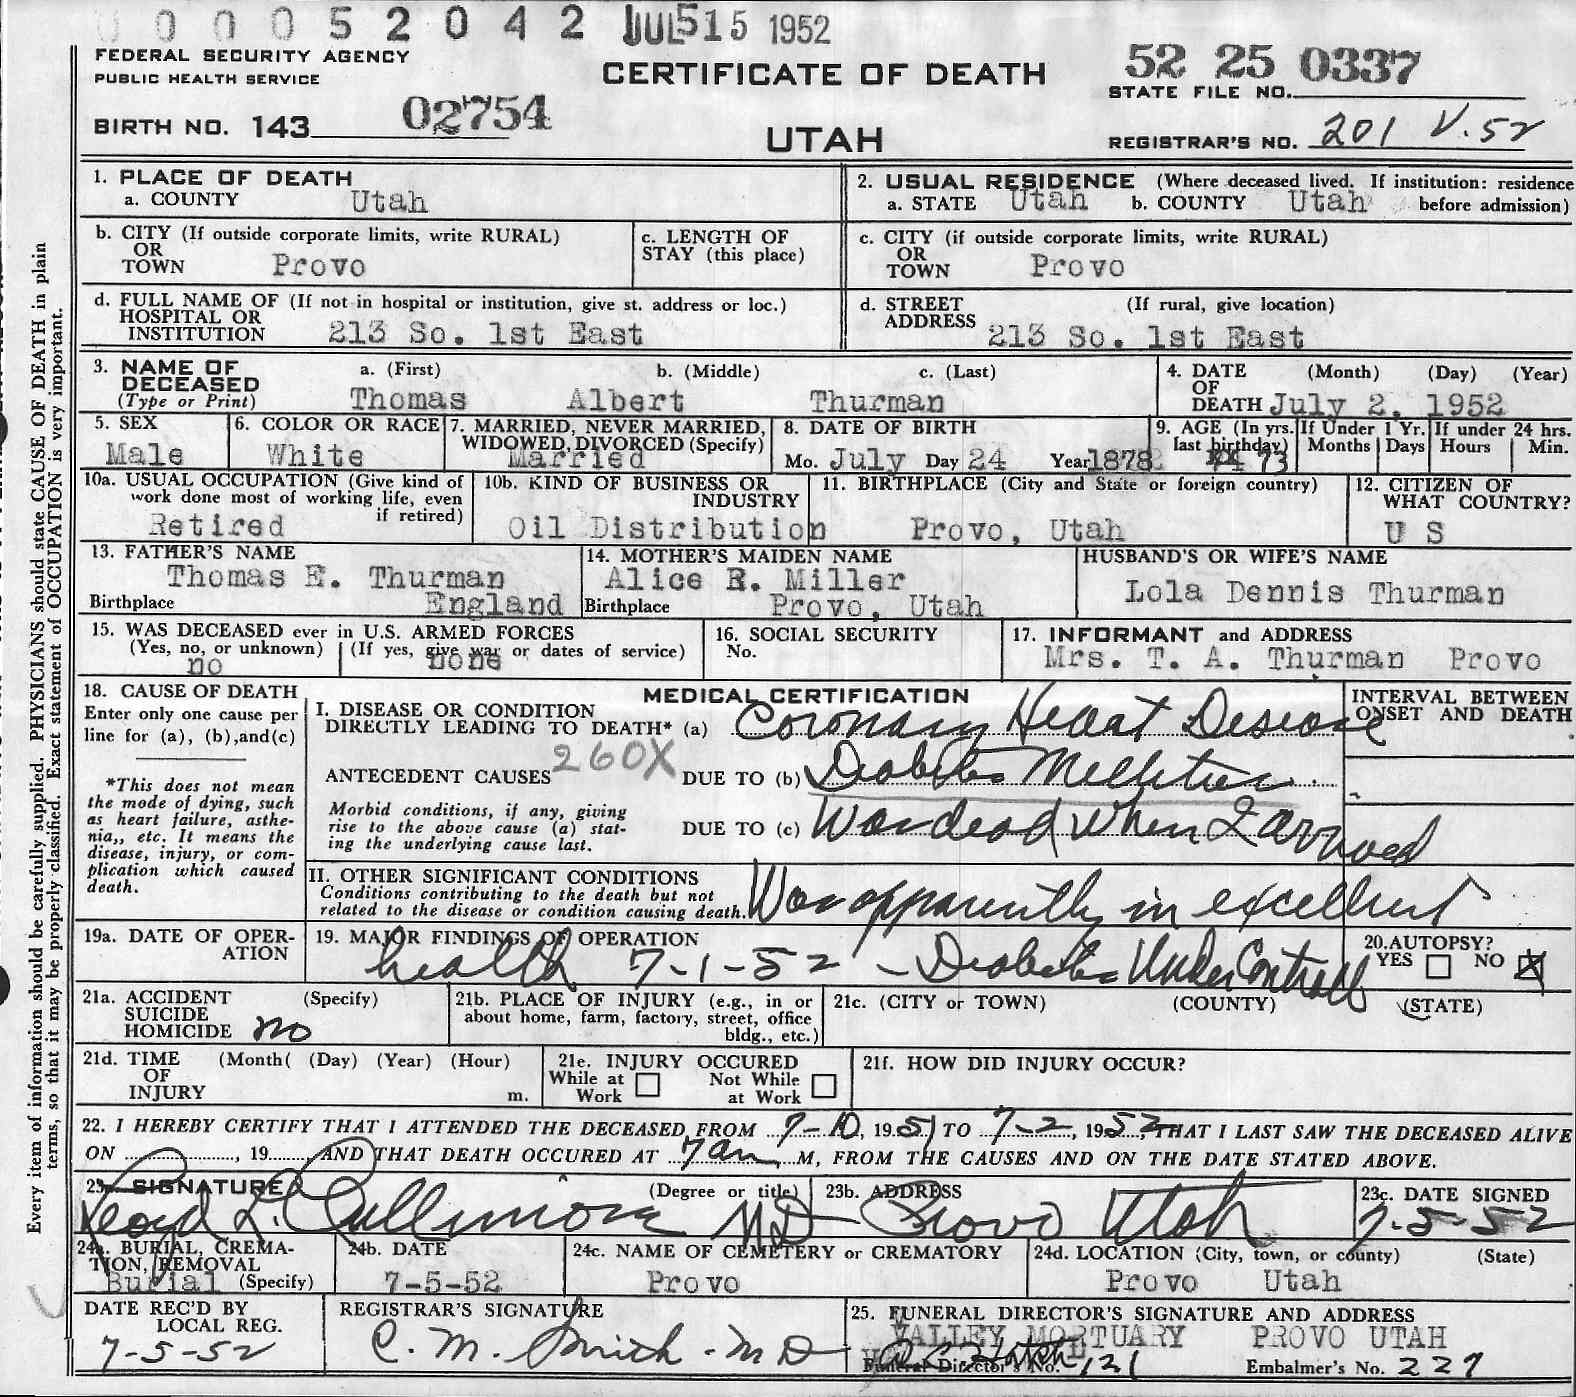 00052042 JUL 15 1952
FEDERAL SECURITY AGENCY
PUBLIC HEALTH SERVICE
CERTIFICATE OF DEATH
52 25 0337
STATE FILE NO.
BIRTH NO. 143 02754
UTAH
REGISTRAR'S NO. 201 V.52
1. PLACE OF DEATH
a. COUNTY Utah
2. USUAL RESIDENCE (Where deceased lived. If institution: residence before admission)
a. STATE Utah b. COUNTY Utah
b. CITY (If outside corporate limits, write RURAL)
OR
TOWN Provo
c. LENGTH OF
STAY (this place)
c. CITY (if outside corporate limits, write RURAL)
OR
TOWN Provo
d. FULL NAME OF (If not in hospital or institution, give st. address or loc.)
HOSPITAL OR
INSTITUTION 213 So. 1st East
d. STREET (If rural, give location)
ADDRESS 213 So. 1st East
3. NAME OF
DECEASED
(Type or Print)
a. (First) b. (Middle) c. (Last)
Thomas Albert Thurman
4. DATE (Month) (Day) (Year)
OF
DEATH July 2, 1952
5. SEX
Male
6. COLOR OR RACE
White
7. MARRIED, NEVER MARRIED,
WIDOWED, DIVORCED (Specify)
Married
8. DATE OF BIRTH
Mo. July Day 24 Year 1878
9. AGE (In yrs.
last birthday)
73
If Under 1 Yr.
Months Days
If under 24 hrs.
Hours Min.
10a. USUAL OCCUPATION (Give kind of
work done most of working life, even
if retired)
Retired
10b. KIND OF BUSINESS OR
INDUSTRY
Oil Distribution
11. BIRTHPLACE (City and State or foreign country)
Provo, Utah
12. CITIZEN OF
WHAT COUNTRY?
U S
13. FATHER'S NAME
Thomas E. Thurman
Birthplace England
14. MOTHER'S MAIDEN NAME
Alice R. Miller
Birthplace Provo, Utah
HUSBAND'S OR WIFE'S NAME
Lola Dennis Thurman
15. WAS DECEASED ever in U.S. ARMED FORCES
(Yes, no, or unknown) (If yes, give war or dates of service)
no none
16. SOCIAL SECURITY
No.
17. INFORMANT and ADDRESS
Mrs. T. A. Thurman Provo
18. CAUSE OF DEATH
Enter only one cause per
line for (a), (b), and(c)
*This does not mean
the mode of dying, such
as heart failure, asthe-
nia,, etc. It means the
disease, injury, or com-
plication which caused
death.
MEDICAL CERTIFICATION
INTERVAL BETWEEN
ONSET AND DEATH
I. DISEASE OR CONDITION
DIRECTLY LEADING TO DEATH* (a) Coronary Heart Disease
260X
ANTECEDENT CAUSES DUE TO (b) Diabetes Mellitus
Morbid conditions, if any, giving
rise to the above cause (a) stat-
ing the underlying cause last.
DUE TO (c) Was dead when I arrived
II. OTHER SIGNIFICANT CONDITIONS
Conditions contributing to the death but not
related to the disease or condition causing death.
Was apparently in excellent
19a. DATE OF OPER-
ATION
19. MAJOR FINDINGS OF OPERATION
health 7-1-52 - Diabetes Under Controll
20. AUTOPSY?
YES NO X
21a. ACCIDENT (Specify)
SUICIDE
HOMICIDE no
21b. PLACE OF INJURY (e.g., in or
about home, farm, factory, street, office
bldg., etc.)
21c. (CITY or TOWN) (COUNTY) (STATE)
21d. TIME (Month( (Day) (Year) (Hour)
OF
INJURY m.
21e. INJURY OCCURED
While at Work Not While at Work
21f. HOW DID INJURY OCCUR?
22. I HEREBY CERTIFY THAT I ATTENDED THE DECEASED FROM 7-10, 1951 TO 7-2, 1952, THAT I LAST SAW THE DECEASED ALIVE
ON ............, 19......, AND THAT DEATH OCCURED AT 7 am M, FROM THE CAUSES AND ON THE DATE STATED ABOVE.
23. SIGNATURE (Degree or title)
Lloyd L. Cullimore MD
23b. ADDRESS
Provo Utah
23c. DATE SIGNED
7-5-52
24a. BURIAL, CREMA-
TION, REMOVAL
Burial (Specify)
24b. DATE
7-5-52
24c. NAME OF CEMETERY or CREMATORY
Provo
24d. LOCATION (City, town, or county) (State)
Provo Utah
DATE REC'D BY
LOCAL REG.
7-5-52
REGISTRAR'S SIGNATURE
C. M. Smith - MD
25. FUNERAL DIRECTOR'S SIGNATURE AND ADDRESS
VALLEY MORTUARY PROVO UTAH
Funeral Director's No. 121 Embalmer's No. 227
Every item of information should be carefully supplied. PHYSICIANS should state CAUSE OF DEATH in plain
terms, so that it may be properly classified. Exact statement of OCCUPATION is very important.